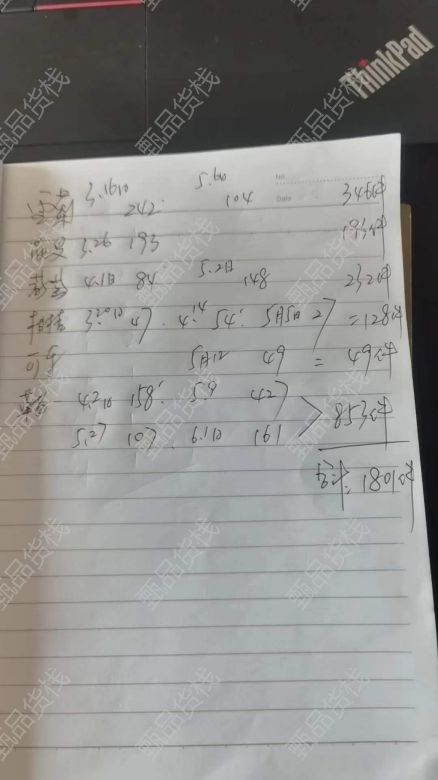 ThinkPad
No.
Date
3.16日 242. 5.6日 104 346件
3.26 193 193件
4.1日 84 5.2日 148 232件
3.20日 47. 4.14 54. 5月5日 27 =128件
可乐 5月12 49 = 49件
4.2日 158. 5.9 42
5.27 107. 6.1日 161 853件
合计= 1801件
甄品货栈